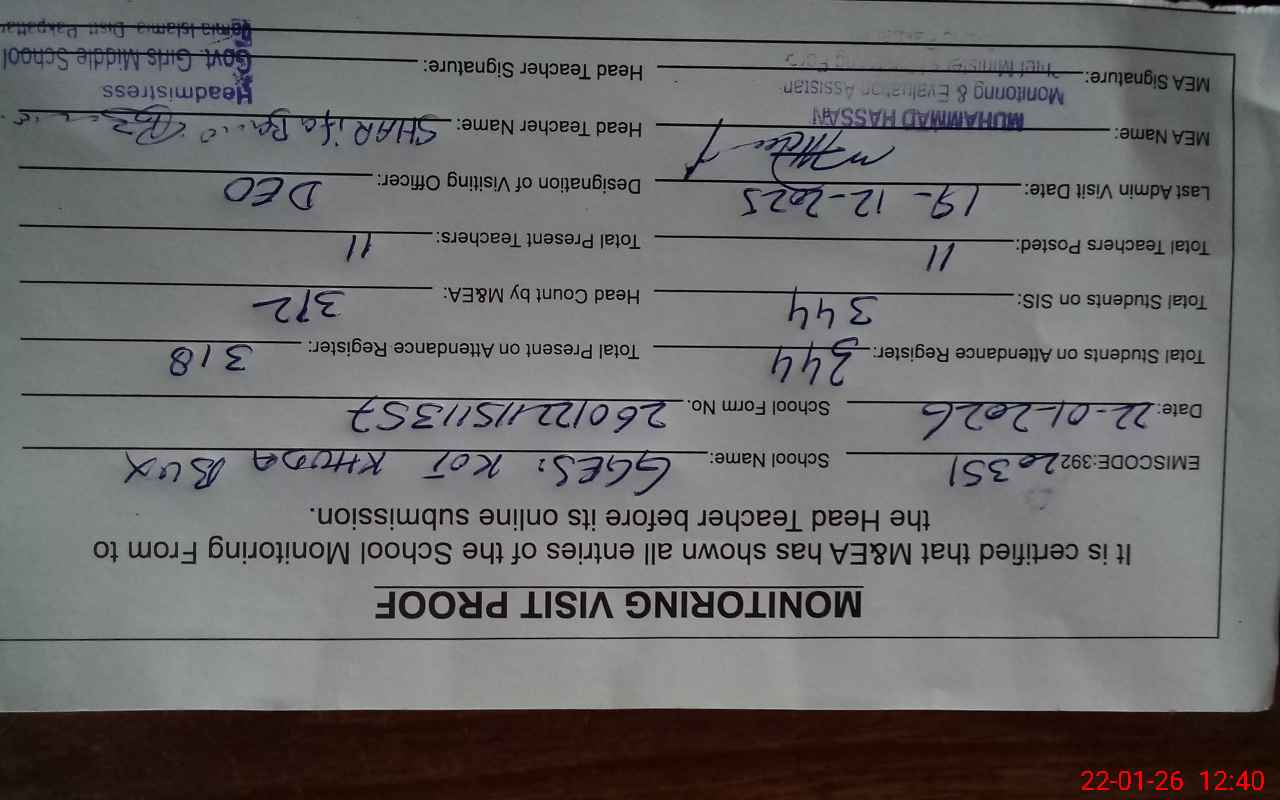 MONITORING VISIT PROOF
It is certified that M&EA has shown all entries of the School Monitoring From to
the Head Teacher before its online submission.
EMISCODE:392 20351 School Name: GGES: KOT KHUDA BUX
Date: 22-01-2026 School Form No. 26012211511357
Total Students on Attendance Register: 344 Total Present on Attendance Register: 318
Total Students on SIS: 344 Head Count by M&EA: 312
Total Teachers Posted: 11 Total Present Teachers: 11
Last Admin Visit Date: 19-12-2025 Designation of Visiting Officer: DEO
MEA Name: MUHAMMAD HASSAN Head Teacher Name: SHARifa Bano
Monitoring & Evaluation Assistant Headmistress
MEA Signature: Head Teacher Signature:
Govt. Girls Middle School
22-01-26 12:40